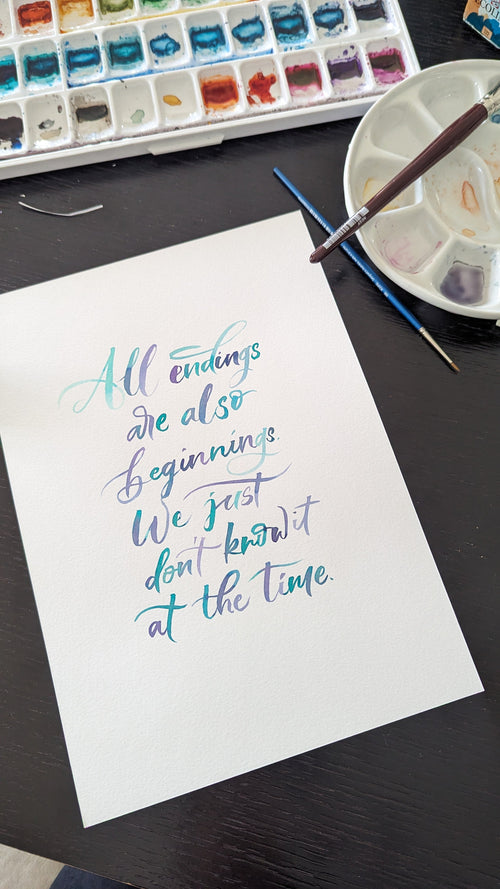 All endings
are also
beginnings.
We just
don't know it
at the time.